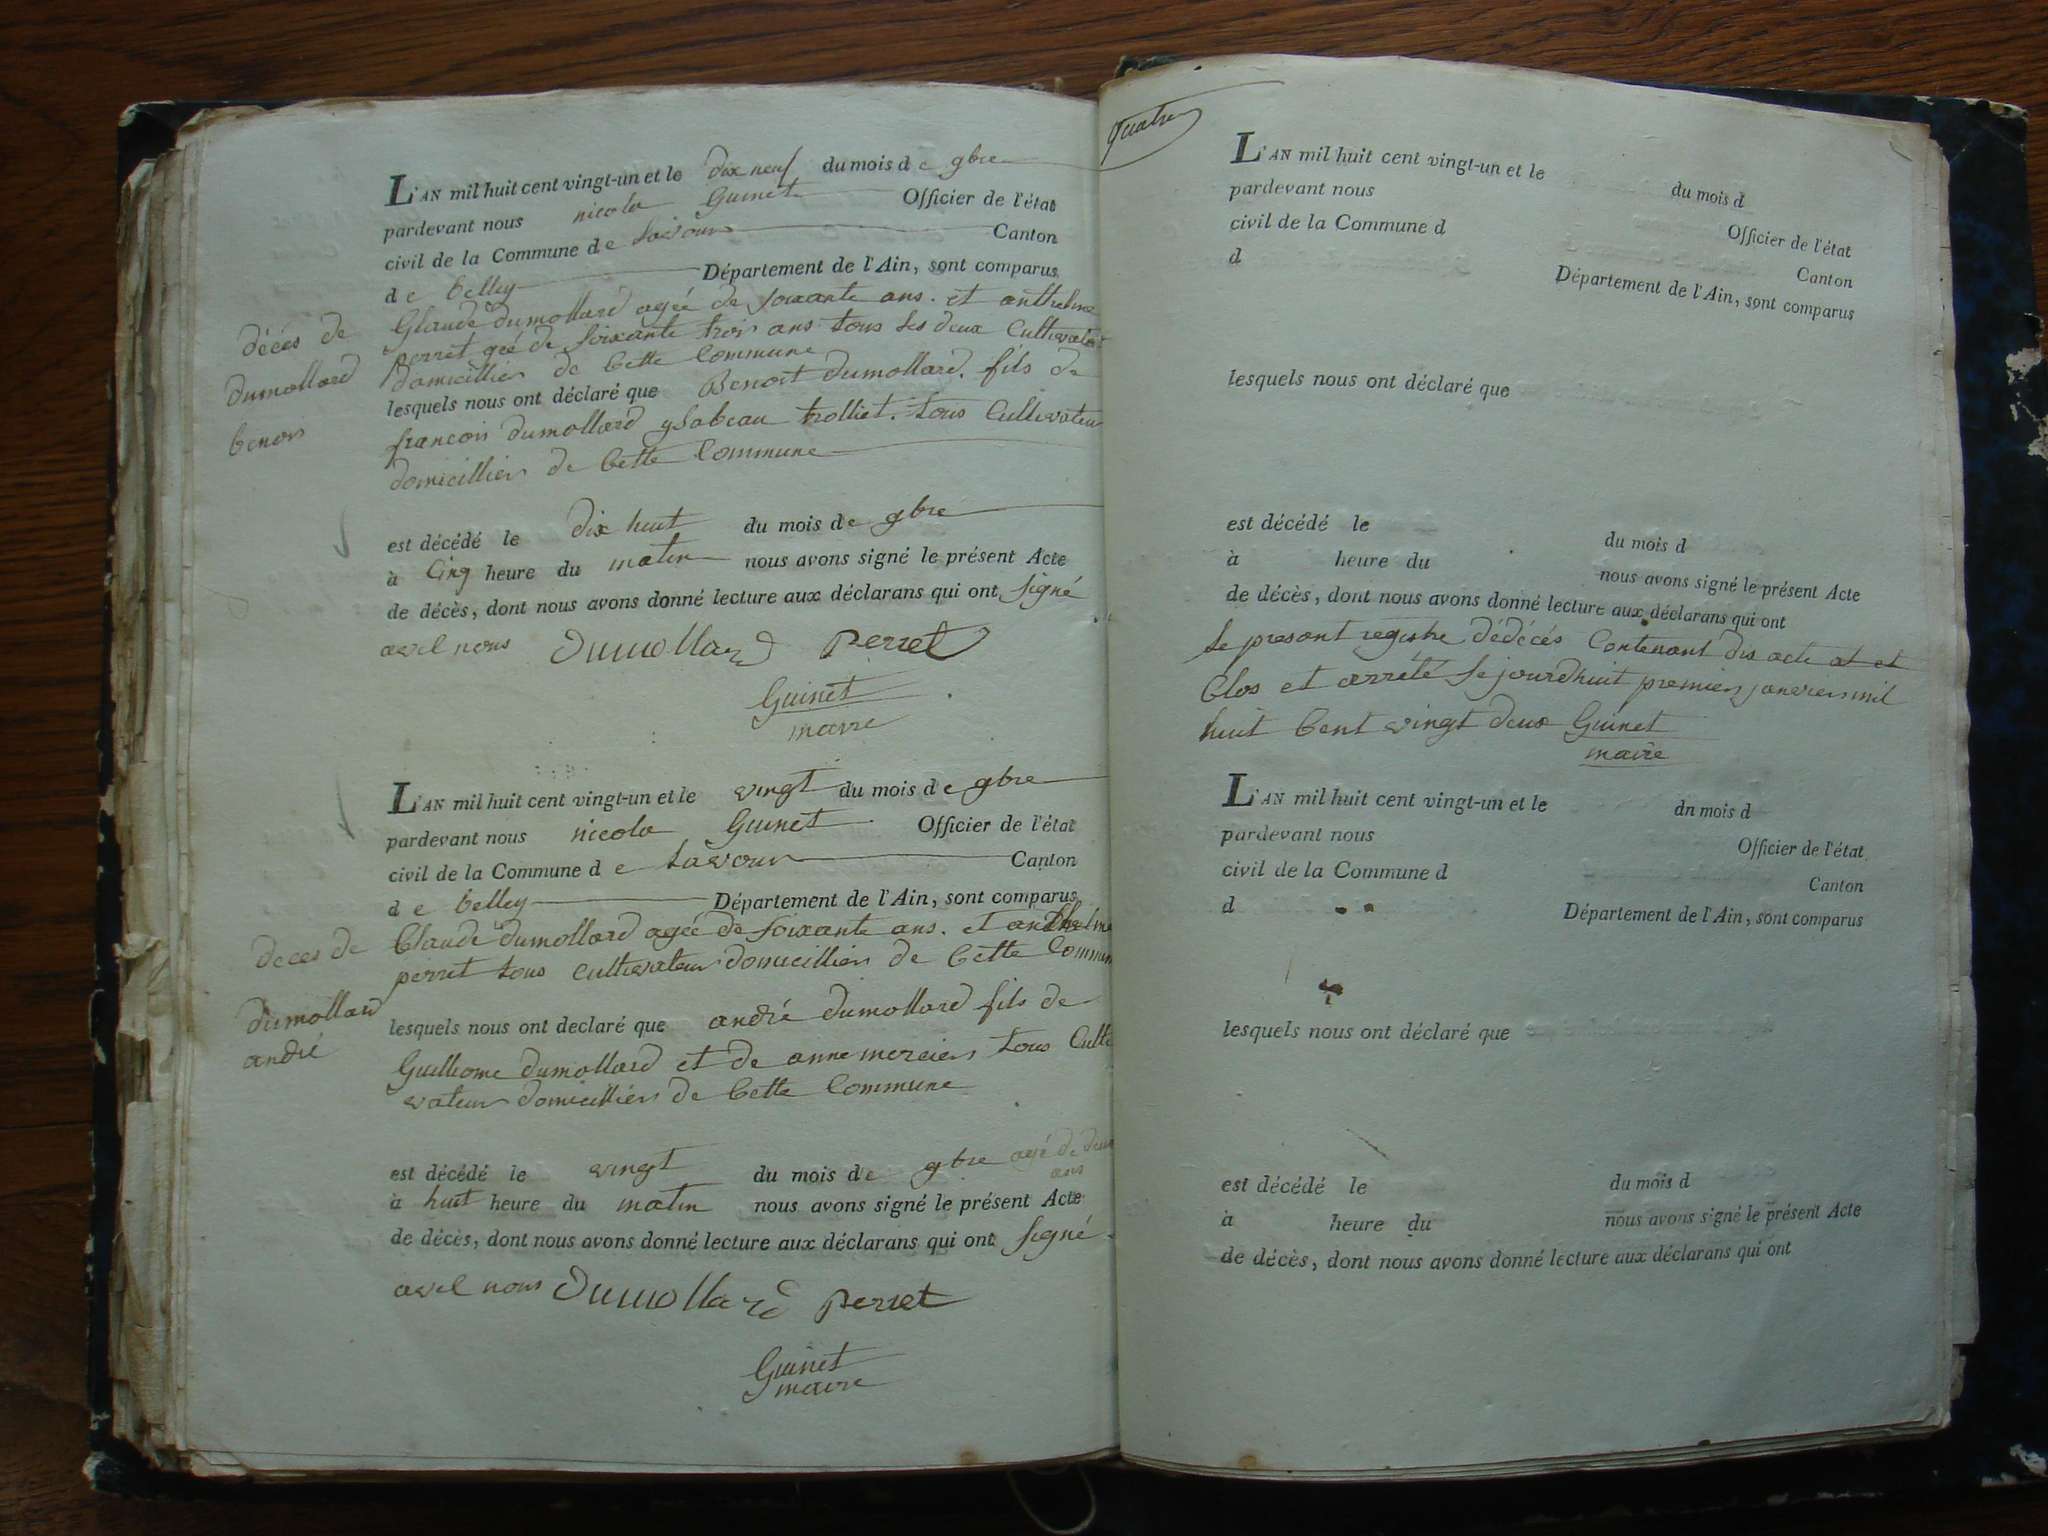 L'AN mil huit cent vingt-un et le dix neuf du mois de 9bre
pardevant nous nicola Guinet Officier de l'état
civil de la Commune de Lavour Canton
de belley Département de l'Ain, sont comparus
Glaude dumollard ageé de soixante ans. et anthelme
perret geé de soixante trois ans tous les deux Cultivateur
domicillier de Cette Commune
lesquels nous ont déclaré que Benoit dumollard. fils de
françois dumollard ysabeau trolliet. tous Cultivateur
domicillier de Cette Commune
décés de
dumollard
benoi
est décédé le dix huit du mois de 9bre
à Cinq heure du matin nous avons signé le présent Acte
de décès, dont nous avons donné lecture aux déclarans qui ont signé
avel nous Dumollard Perret
Guinet
maire
L'AN mil huit cent vingt-un et le vingt du mois de 9bre
pardevant nous nicola Guinet Officier de l'état
civil de la Commune de Lavour Canton
de belley Département de l'Ain, sont comparus
Claude dumollard ageé de soixante ans. et anthelme
perret tous cultivateur domicillier de Cette Commun
deces de
dumollard
andré
lesquels nous ont declaré que andré dumollard fils de
Guilliome dumollard et de anne mercier tous Culti
vateur domicillier de Cette Commune
est décédé le vingt du mois de 9bre agé de deux
ans
à huit heure du matin nous avons signé le présent Acte
de décès, dont nous avons donné lecture aux déclarans qui ont signé
avel nous Dumollard Perret
Guinet
maire
quatre
L'AN mil huit cent vingt-un et le du mois d
pardevant nous Officier de l'état
civil de la Commune d Canton
d Département de l'Ain, sont comparus
lesquels nous ont déclaré que
est décédé le du mois d
à heure du nous avons signé le présent Acte
de décès, dont nous avons donné lecture aux déclarans qui ont
le present registre dédécés Contenant dis acte at et
Clos et arrété le jourdhuit premier janvier mil
huit Cent vingt deux Guinet
maire
L'AN mil huit cent vingt-un et le dn mois d
pardevant nous Officier de l'état
civil de la Commune d Canton
d Département de l'Ain, sont comparus
lesquels nous ont déclaré que
est décédé le du mois d
à heure du nous avons signé le présent Acte
de décès, dont nous avons donné lecture aux déclarans qui ont